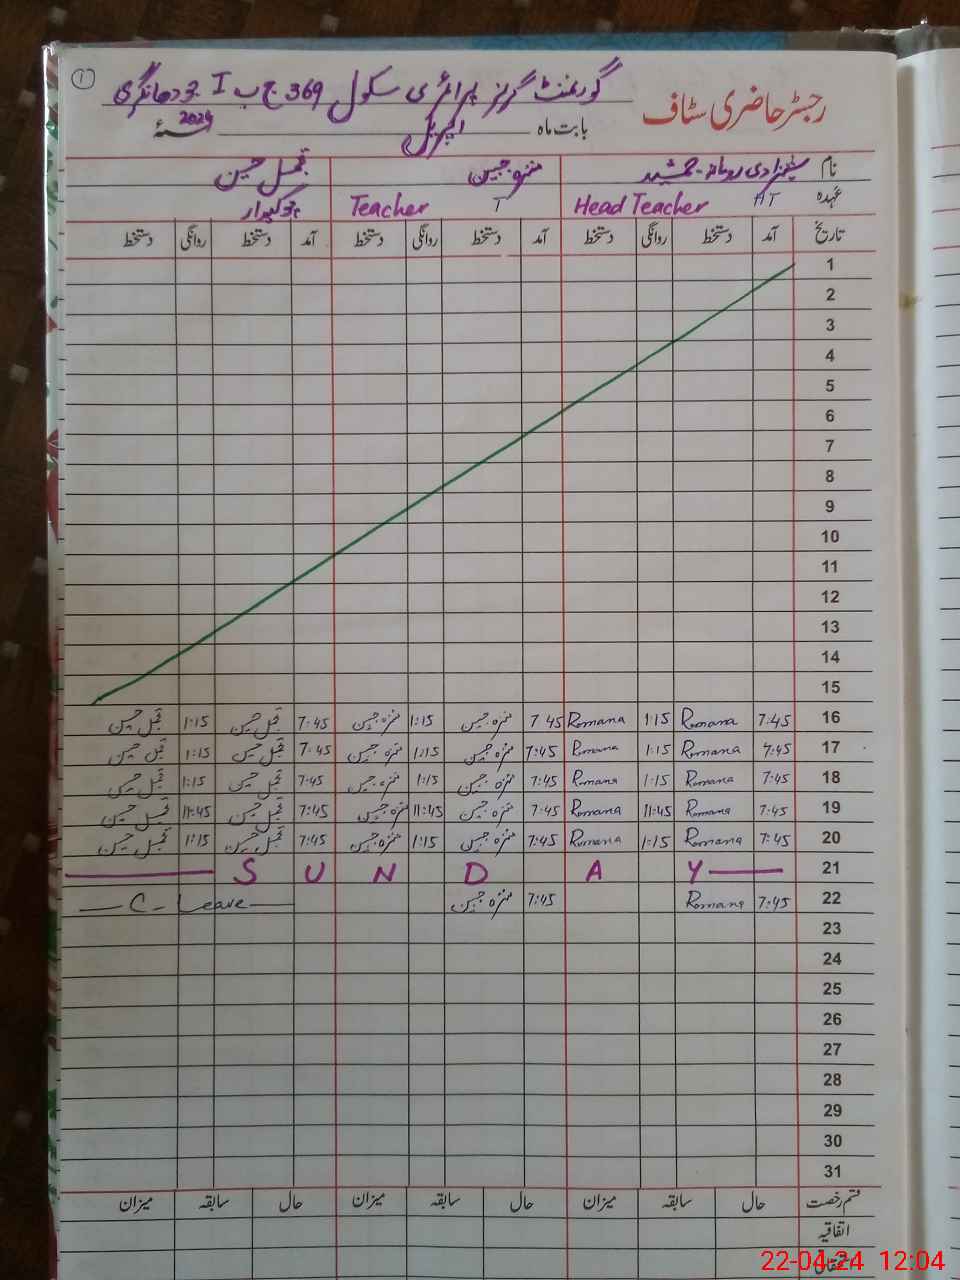 ①
رجسٹر حاضری سٹاف
گورنمنٹ گرلز پرائمری سکول 369 ج ب I جودھانگری
بابت ماہ اپریل 2024ء
نام شہزادی رومانہ جمشید منزہ جبین تجمل حسین
عہدہ HT Head Teacher T Teacher چوکیدار
تاریخ آمد دستخط روانگی دستخط آمد دستخط روانگی دستخط آمد دستخط روانگی دستخط
1
2
3
4
5
6
7
8
9
10
11
12
13
14
15
16 7:45 Romana 1:15 Romana 7 45 منزہ جبین 1:15 منزہ جبین 7:45 تجمل حسین 1:15 تجمل حسین
17 7:45 Romana 1:15 Romana 7:45 منزہ جبین 1:15 منزہ جبین 7:45 تجمل حسین 1:15 تجمل حسین
18 7:45 Romana 1:15 Romana 7:45 منزہ جبین 1:15 منزہ جبین 7:45 تجمل حسین 1:15 تجمل حسین
19 7:45 Romana 11:45 Romana 7:45 منزہ جبین 11:45 منزہ جبین 7:45 تجمل حسین 11:45 تجمل حسین
20 7:45 Romana 1:15 Romana 7:45 منزہ جبین 1:15 منزہ جبین 7:45 تجمل حسین 1:15 تجمل حسین
21 S U N D A Y
22 7:45 Romana 7:45 منزہ جبین C- Leave
23
24
25
26
27
28
29
30
31
قسم رخصت حال سابقہ میزان حال سابقہ میزان حال سابقہ میزان
اتفاقیہ
22-04-24 12:04